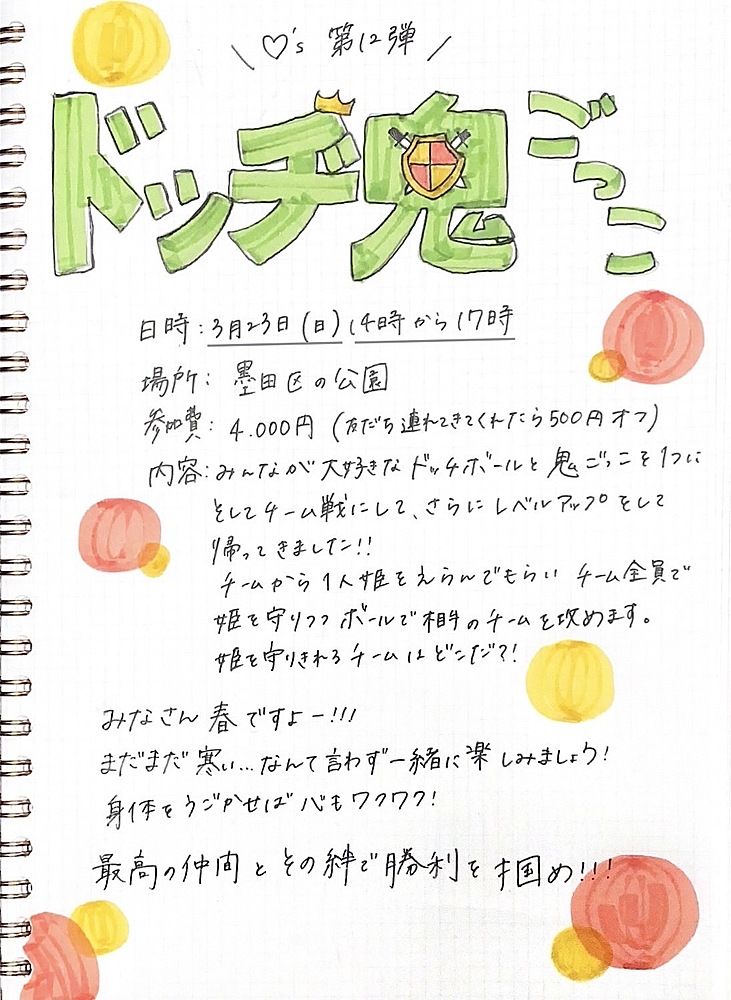 \ ♡'s 第12弾 /
ドッヂ鬼ごっこ
日時：3月23日（日）14時から17時
場所：墨田区の公園
参加費：4.000円（友だち連れてきてくれたら500円オフ）
内容：みんなが大好きなドッチボールと鬼ごっこを1つに
そしてチーム戦にして、さらにレベルアップをして
帰ってきました!!
チームから1人姫をえらんでもらいチーム全員で
姫を守りつつボールで相手のチームを攻めます。
姫を守りきれるチームはどこだ?!
みなさん春ですよー!!!
まだまだ寒い…なんて言わず一緒に楽しみましょう!
身体をうごかせば心もワクワク!
最高の仲間とその絆で勝利を掴め!!!